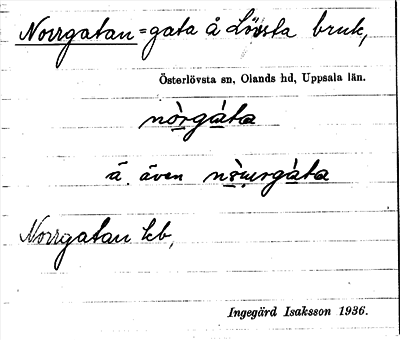 Norrgatan = gata å Lövsta bruk,
Österlövsta sn, Olands hd, Uppsala län.
nòrgáta
ä. även
Norrgatan kb,
Ingegärd Isaksson 1936.